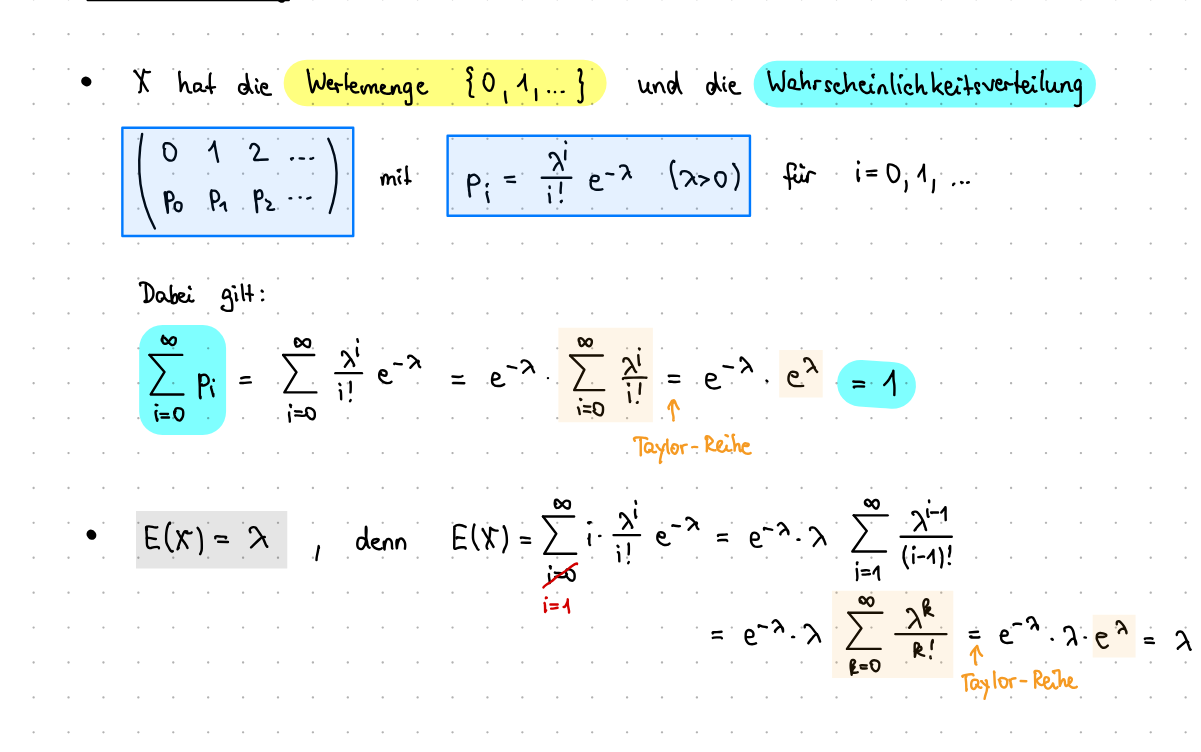 • X hat die Wertemenge {0, 1, ...} und die Wahrscheinlichkeitsverteilung
( 0 1 2 ... ; p₀ p₁ p₂ ... ) mit pᵢ = λⁱ/i! e^(-λ) (λ>0) für i = 0, 1, ...
Dabei gilt:
∑_{i=0}^{∞} pᵢ = ∑_{i=0}^{∞} λⁱ/i! e^(-λ) = e^(-λ) · ∑_{i=0}^{∞} λⁱ/i! = e^(-λ) · e^λ = 1
↑
Taylor-Reihe
• E(X) = λ , denn E(X) = ∑_{i=0}^{∞} i · λⁱ/i! e^(-λ) = e^(-λ) · λ ∑_{i=1}^{∞} λ^(i-1)/(i-1)!
i=1
= e^(-λ) · λ ∑_{k=0}^{∞} λ^k/k! = e^(-λ) · λ · e^λ = λ
↑
Taylor-Reihe